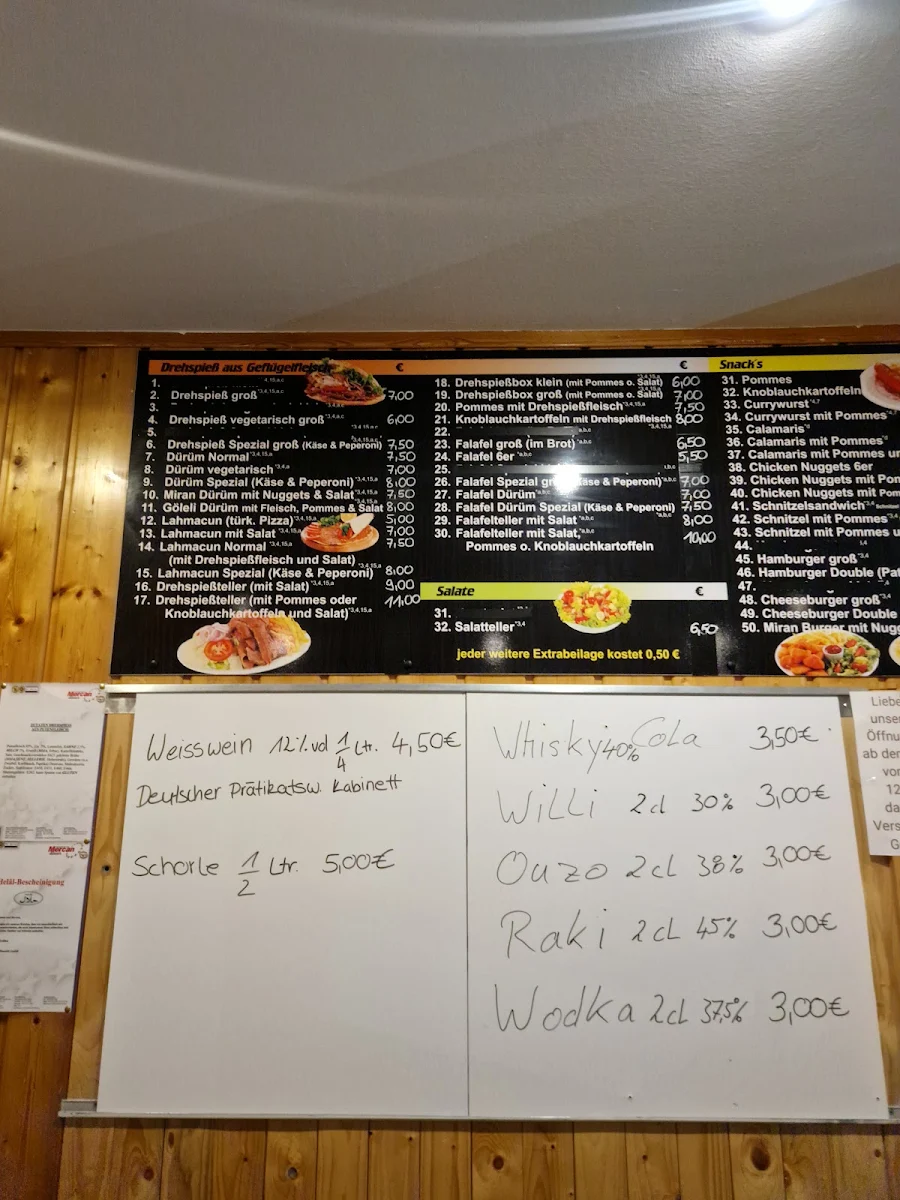 Drehspieß aus Geflügelfleisch €
1.
2. Drehspieß groß 7,00
3.
4. Drehspieß vegetarisch groß 6,00
5.
6. Drehspieß Spezial groß (Käse & Peperoni) 7,50
7. Dürüm Normal 7,50
8. Dürüm vegetarisch 7,00
9. Dürüm Spezial (Käse & Peperoni) 8,00
10. Miran Dürüm mit Nuggets & Salat 7,50
11. Göleli Dürüm mit Fleisch, Pommes & Salat 8,00
12. Lahmacun (türk. Pizza) 5,00
13. Lahmacun mit Salat 7,00
14. Lahmacun Normal 7,50
(mit Drehspießfleisch und Salat)
15. Lahmacun Spezial (Käse & Peperoni) 8,00
16. Drehspießteller (mit Salat) 9,00
17. Drehspießteller (mit Pommes oder 11,00
Knoblauchkartoffeln und Salat)
€
18. Drehspießbox klein (mit Pommes o. Salat) 6,00
19. Drehspießbox groß (mit Pommes o. Salat) 7,00
20. Pommes mit Drehspießfleisch 7,50
21. Knoblauchkartoffeln mit Drehspießfleisch 8,00
22.
23. Falafel groß (im Brot) 6,50
24. Falafel 6er 5,50
25.
26. Falafel Spezial groß (Käse & Peperoni) 7,00
27. Falafel Dürüm 7,00
28. Falafel Dürüm Spezial (Käse & Peperoni) 7,50
29. Falafelteller mit Salat 8,00
30. Falafelteller mit Salat, 10,00
Pommes o. Knoblauchkartoffeln
Salate €
31.
32. Salatteller 6,50
jeder weitere Extrabeilage kostet 0,50 €
Snack's
31. Pommes
32. Knoblauchkartoffeln
33. Currywurst
34. Currywurst mit Pommes
35. Calamaris
36. Calamaris mit Pommes
37. Calamaris mit Pommes
38. Chicken Nuggets 6er
39. Chicken Nuggets mit
40. Chicken Nuggets mit
41. Schnitzelsandwich
42. Schnitzel mit Pommes
43. Schnitzel mit Pommes
44.
45. Hamburger groß
46. Hamburger Double
47.
48. Cheeseburger groß
49. Cheeseburger Double
50. Miran Burger mit
Weisswein 12%vol 1/4 Ltr. 4,50€
Deutscher Prätikatsw. Kabinett
Schorle 1/2 Ltr. 5,00€
Whisky 40% Cola 3,50€
Willi 2cl 30% 3,00€
Ouzo 2cl 38% 3,00€
Raki 2cl 45% 3,00€
Wodka 2cl 37,5% 3,00€
Mercan
Mercan
Helâl-Bescheinigung
Liebe
unser
Öffnu
ab der
vor
12
da
Vers
G